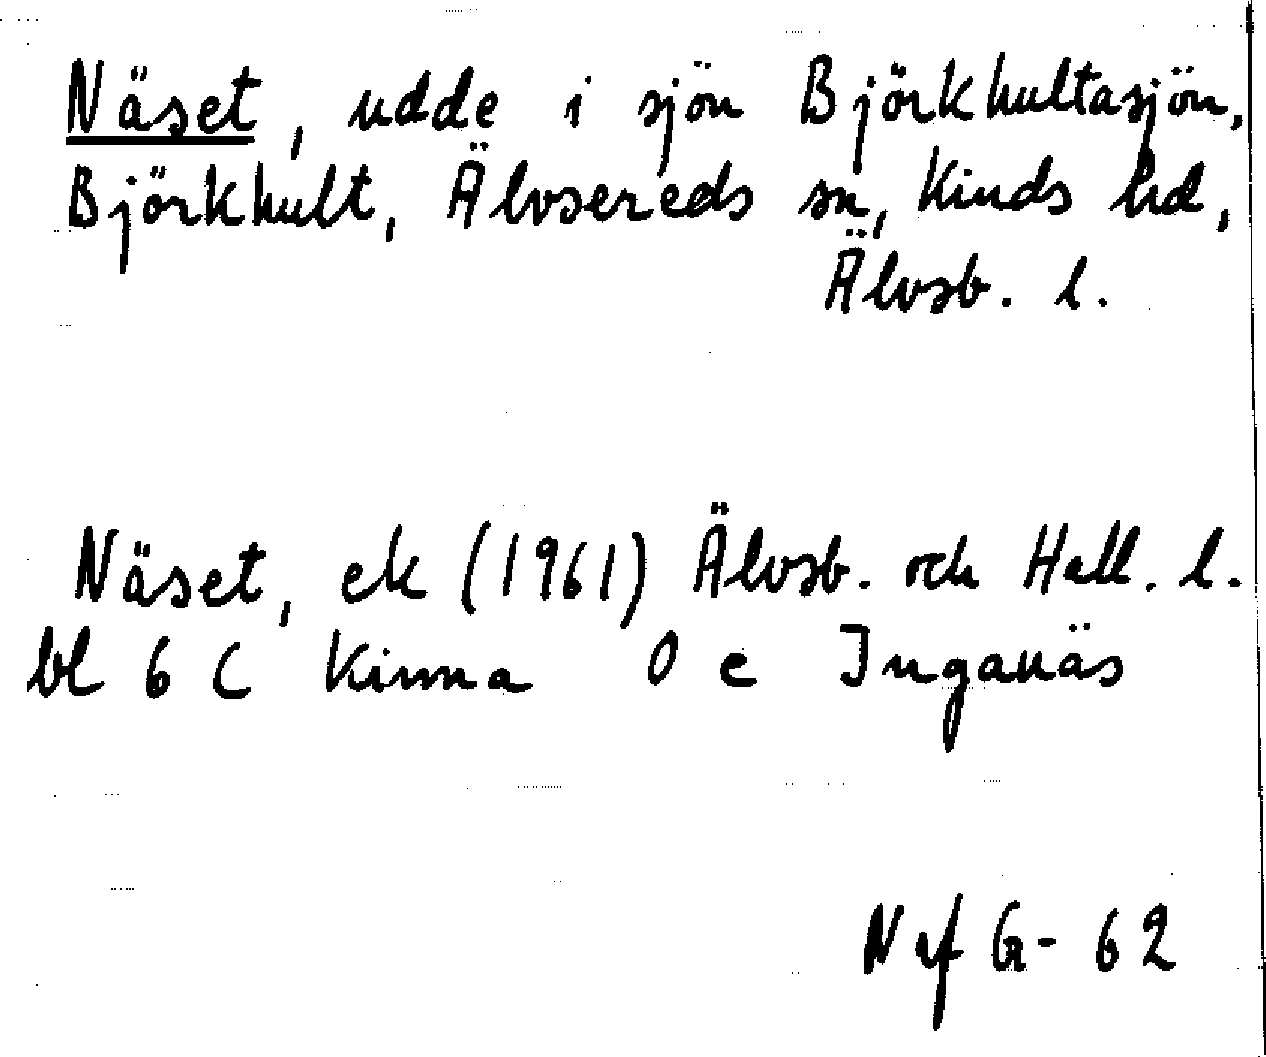 Näset, udde i sjön Björkhultasjön,
Björkhult, Älvsereds sn, Kinds hd,
Älvsb. l.
Näset, ek (1961) Älvsb. och Hall. l.
bl 6 C Kinna 0 e Inganäs
Nef G- 62